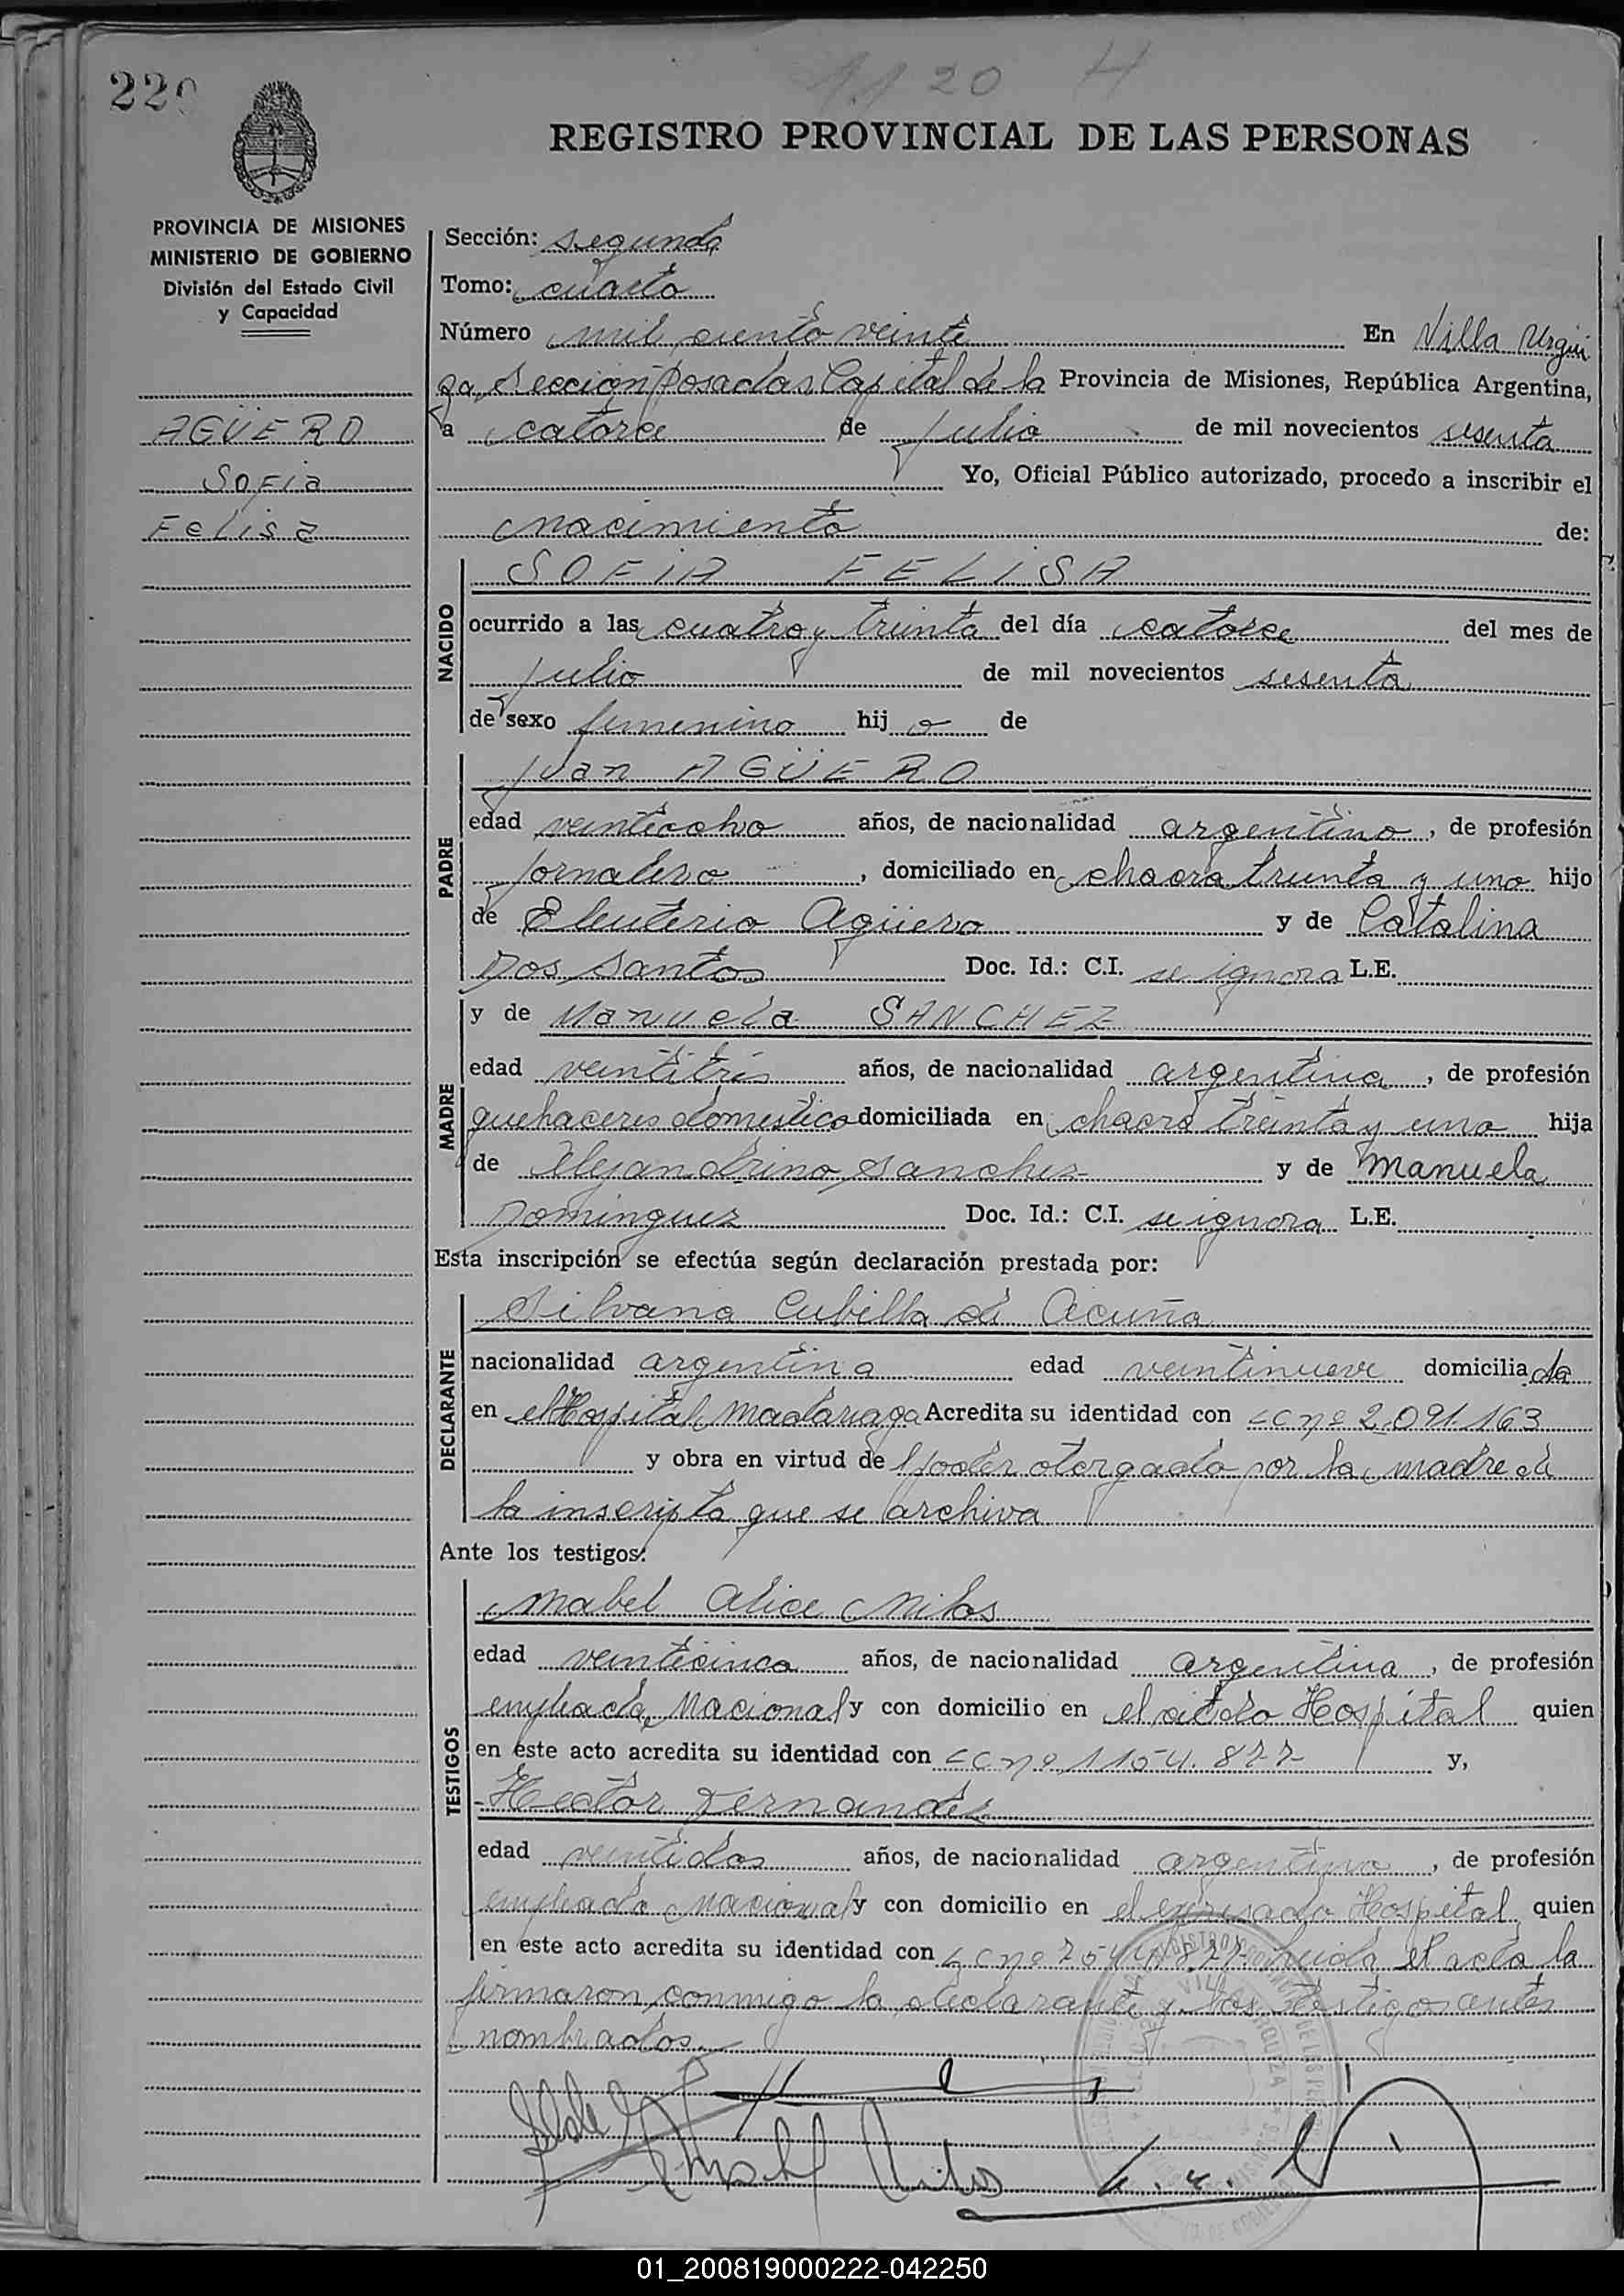 1120 H
220
REGISTRO PROVINCIAL DE LAS PERSONAS
PROVINCIA DE MISIONES
MINISTERIO DE GOBIERNO
División del Estado Civil
y Capacidad
AGÜERO
Sofia
Felisa
Sección: segunda
Tomo: cuarto
Número mil ciento veinte En Villa Urqui
za, Sección Posadas Capital de la Provincia de Misiones, República Argentina,
a catorce de julio de mil novecientos sesenta
Yo, Oficial Público autorizado, procedo a inscribir el
nacimiento de:
NACIDO
SOFIA FELISA
ocurrido a las cuatro y treinta del día catorce del mes de
julio de mil novecientos sesenta
de sexo femenino hij a de
PADRE
Juan AGÜERO
edad veintiocho años, de nacionalidad argentino, de profesión
jornalero, domiciliado en chacra treinta y uno hijo
de Eleuterio Agüero y de Catalina
Dos Santos Doc. Id.: C.I. se ignora L.E.
MADRE
y de Manuela SANCHEZ
edad veintitrés años, de nacionalidad argentina, de profesión
quehaceres domestico domiciliada en chacra treinta y uno hija
de Alejandrino Sanchez y de Manuela
Dominguez Doc. Id.: C.I. se ignora L.E.
Esta inscripción se efectúa según declaración prestada por:
DECLARANTE
Silvana Cubilla de Acuña
nacionalidad argentina edad veintinueve domiciliada
en el Hospital Madariaga Acredita su identidad con LC nº 2.091.163
y obra en virtud de poder otorgado por la madre de
la inscripta que se archiva
Ante los testigos:
TESTIGOS
Mabel Alice Milos
edad veinticinco años, de nacionalidad argentina, de profesión
empleada Nacional y con domicilio en el citado Hospital quien
en este acto acredita su identidad con LC nº 1154.877 y,
Hector Fernandez
edad veintidos años, de nacionalidad argentino, de profesión
empleado Nacional y con domicilio en el expresado Hospital quien
en este acto acredita su identidad con leida el acta la
firmaron conmigo la declarante y los testigos antes
nombrados.
01_200819000222-042250